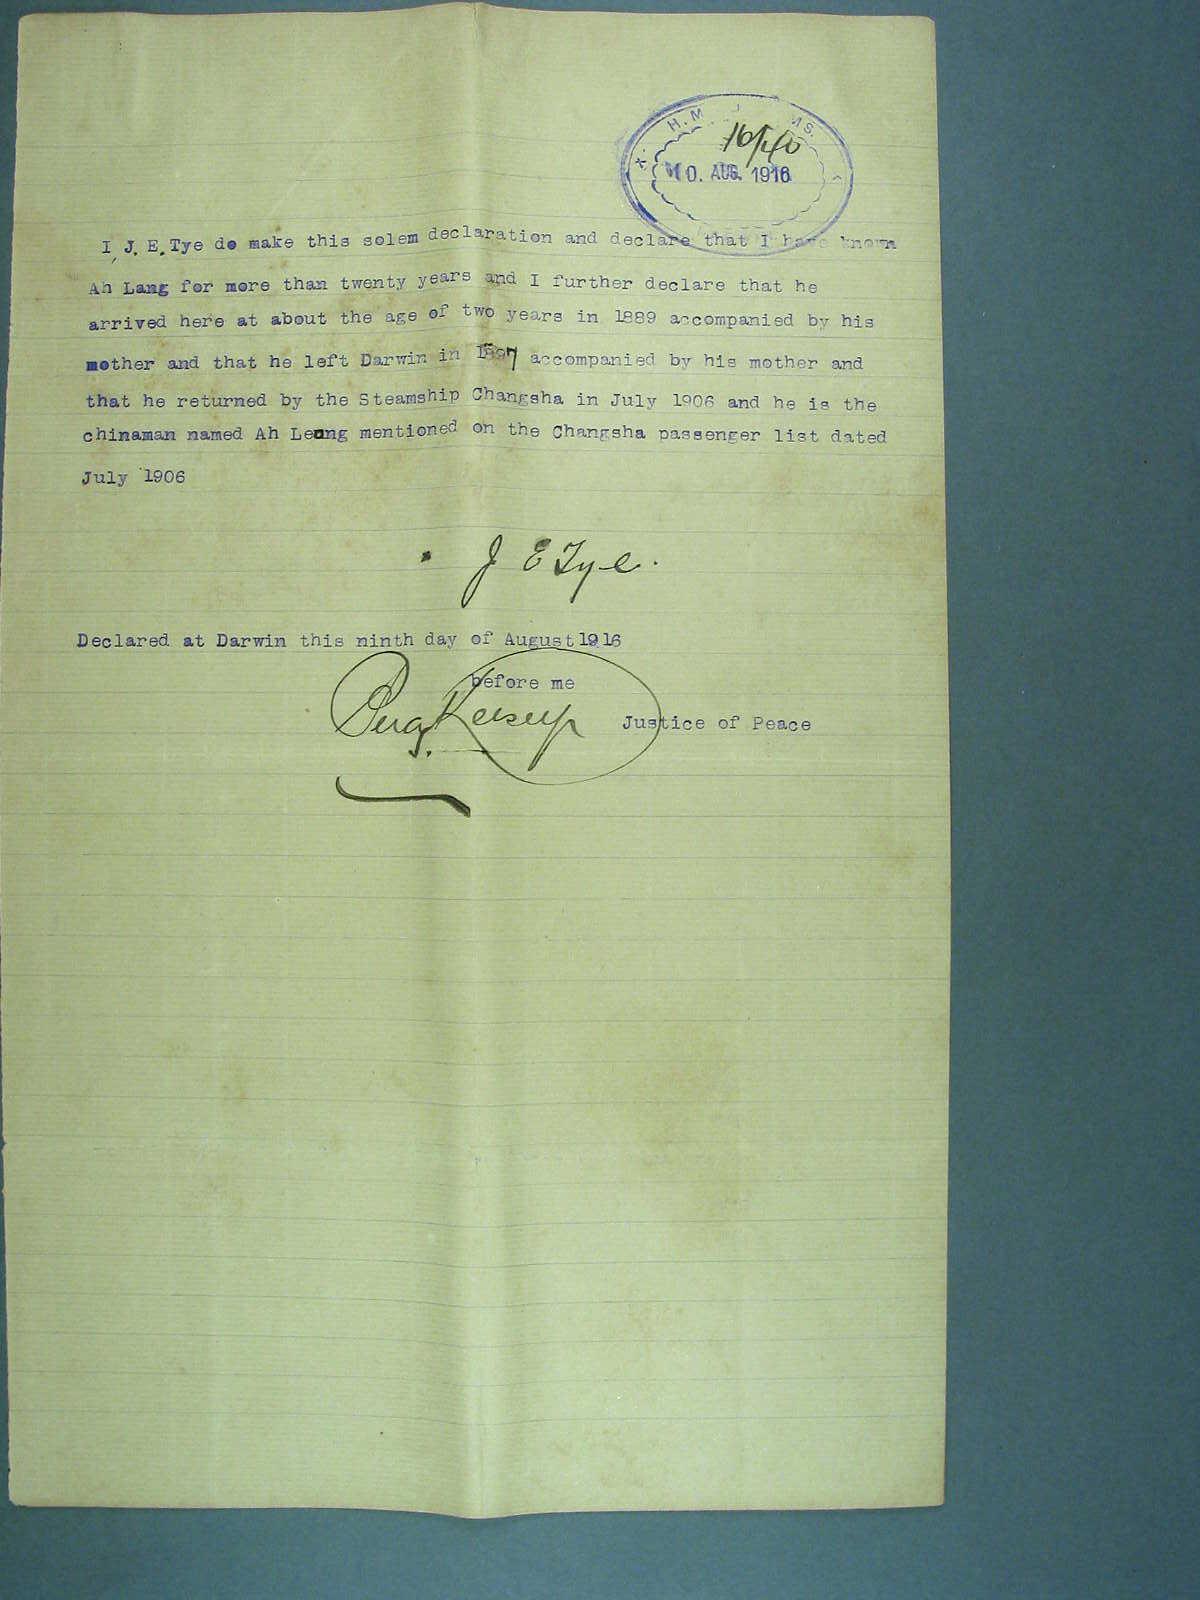 H.M.
16/40
10. AUG. 1916
I, J. E. Tye do make this solem declaration and declare that I have known
Ah Lang for more than twenty years and I further declare that he
arrived here at about the age of two years in 1889 accompanied by his
mother and that he left Darwin in 1897 accompanied by his mother and
that he returned by the Steamship Changsha in July 1906 and he is the
chinaman named Ah Leung mentioned on the Changsha passenger list dated
July 1906
J E Tye.
Declared at Darwin this ninth day of August 1916
before me
Justice of Peace